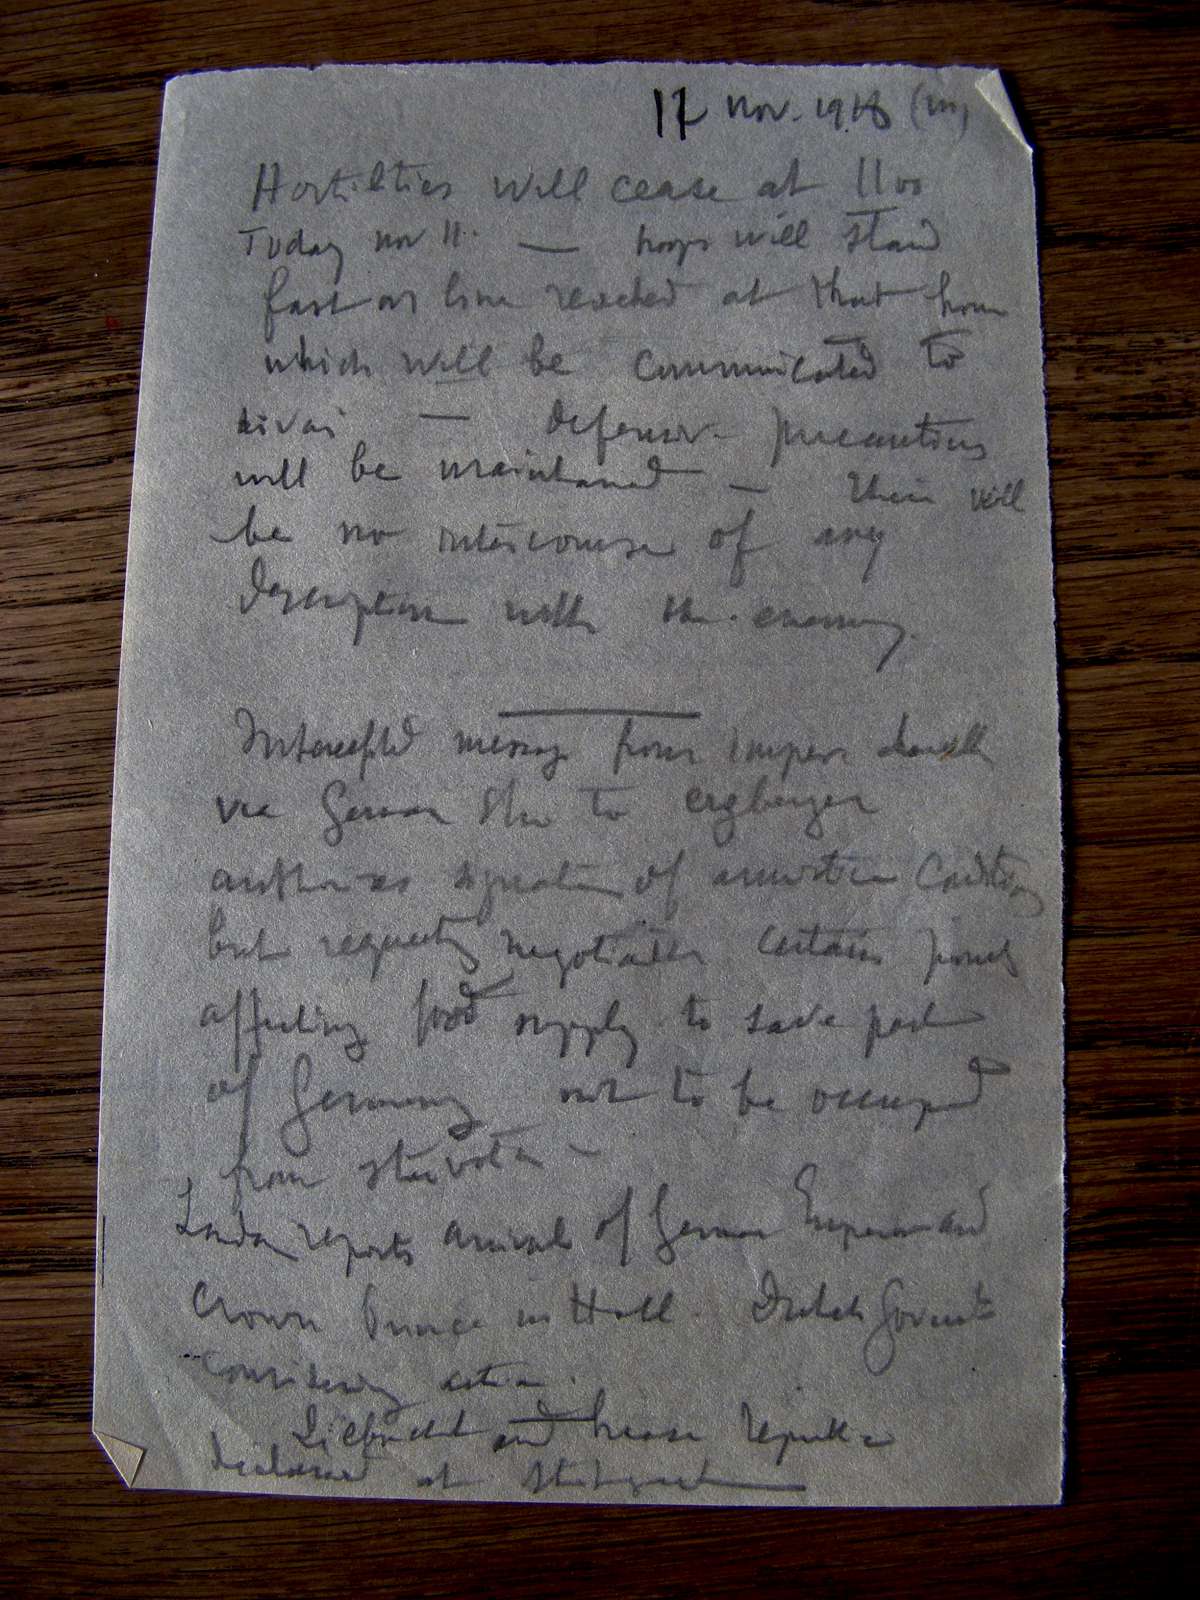 17 Nov. 1918 (m)
Hostilities will cease at 1100
Today Nov 11. — troops will stand
fast on line reached at that hour
which will be communicated to
— defensive precautions
will be maintained — there will
be no intercourse of any
description with the enemy.
Intercepted message from
via German to
signature of armistice
but requesting negotiation certain points
affecting food supply to save part
of Germany not to be occupied
from starvation —
London reports arrival of German Emperor and
Crown Prince in Holl. Dutch Govmt
considering action.
and
declared at